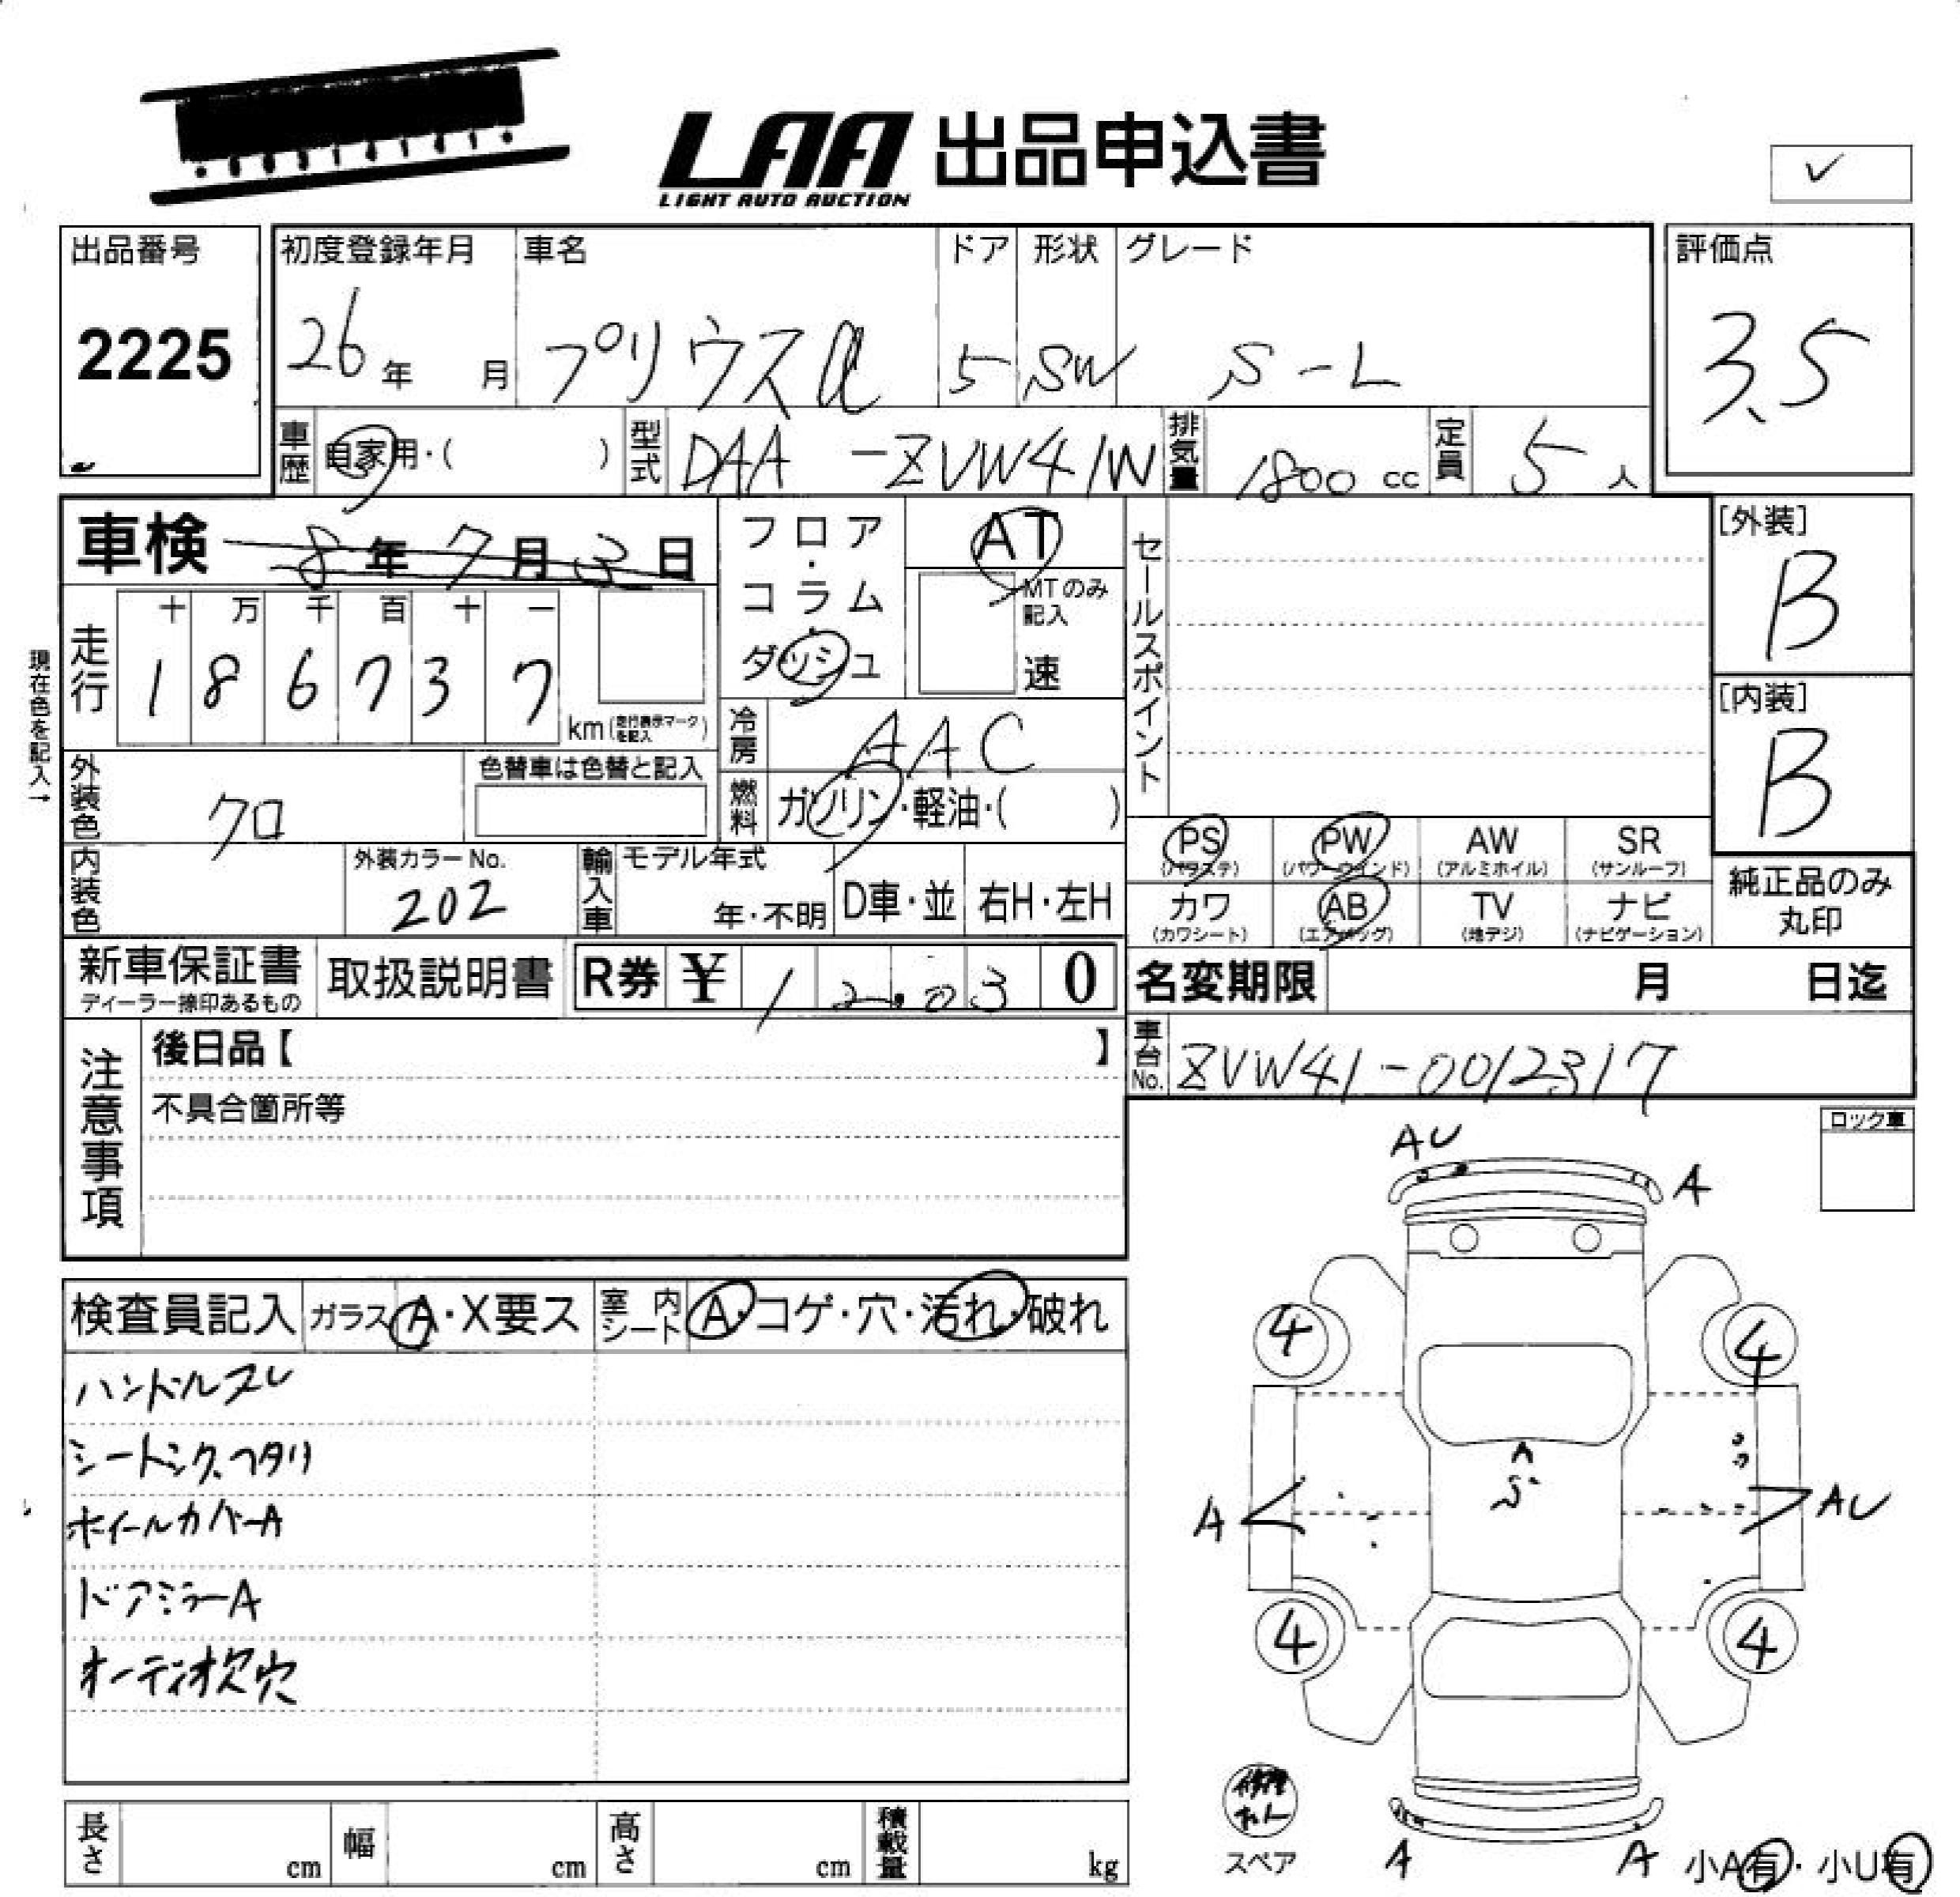 LAA 出品申込書
LIGHT AUTO AUCTION
✓
出品番号 初度登録年月 車名 ドア 形状 グレード 評価点
2225 26年 月 プリウスα 5 SW S-L 3.5
車歴 自家用・( ) 型式 DAA-ZVW41W 排気量 1800 cc 定員 5 人
車検 8年7月3日 フロア・コラム・ダッシュ AT セールスポイント [外装]
B
MTのみ記入
速
十 万 千 百 十 一
走行 1 8 6 7 3 7 km (走行表示マークを記入) [内装]
B
現在色を記入→
冷房 AAC
外装色 クロ 色替車は色替と記入 燃料 ガソリン・軽油・( )
PS (パワステ) PW (パワーウインド) AW (アルミホイル) SR (サンルーフ)
内装色 外装カラーNo. 202 輸入車 モデル年式 年・不明 D車・並 右H・左H
カワ (カワシート) AB (エアバッグ) TV (地デジ) ナビ (ナビゲーション)
純正品のみ
丸印
新車保証書 ディーラー捺印あるもの 取扱説明書 R券 ¥ 12.03 0 名変期限 月 日迄
注意事項 後日品【 】 車台No. ZVW41-0012317
不具合箇所等
ロック車
AU
A
検査員記入 ガラス A・X要ス 室内シート A・コゲ・穴・汚れ・破れ
4 4
ハンドルスレ
シートシミ、ヘタリ
A
ホイールカバーA
A AU
ドアミラーA
4 4
オーディオ欠穴
修理キット
スペア
A A 小A有・小U有
長さ cm 幅 cm 高さ cm 積載量 kg